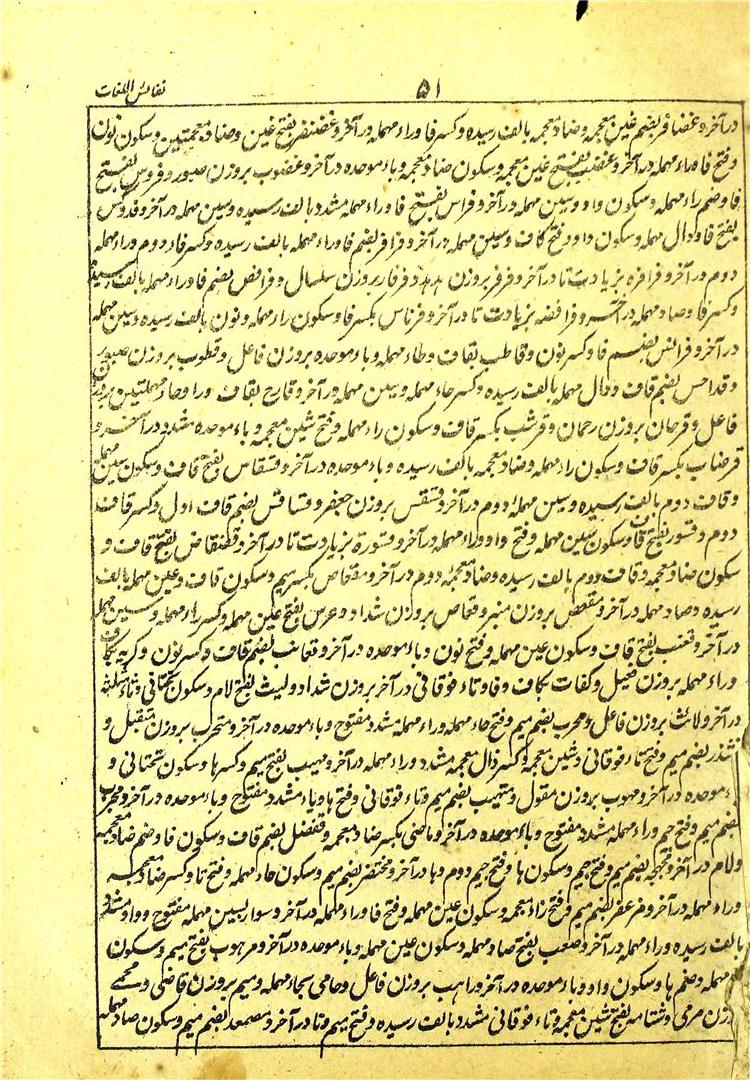 ۵۱
نفائس اللغات
در آخر و غضافر بضم غین معجمه و ضاد معجمه بالف رسیده و کسر فا و راء مهمله در آخر و غضنفر بفتح غین و ضاد معجمتین و سکون نون
و فتح فا و راء مهمله در آخر و غضب بفتح غین معجمه و سکون ضاد معجمه و باء موحده در آخر و غضوب بروزن صبور و فروس بفتح
فا و ضم راء مهمله و سکون واو و سین مهمله در آخر و فراس بفتح فا و راء مهمله مشدد بالف رسیده و سین مهمله در آخر و فدوکس
بفتح فا و دال مهمله و سکون واو و فتح کاف و سین مهمله در آخر و فرافر بضم فا و راء مهمله بالف رسیده و کسر فاء دوم و راء مهمله
دوم در آخر و فرافره بزیادت تا در آخر و فرفر بروزن هدهد و فرفار بروزن سلسال و فرافص بضم فا و راء مهمله بالف رسیده
و کسر فا و صاد مهمله در آخر و فرافصه بزیادت تا در آخر و فرناس بکسر فا و سکون راء مهمله و نون بالف رسیده و سین مهمله
در آخر و فرانس بضم فا و کسر نون و قاطب بقاف و طاء مهمله و باء موحده بروزن فاعل و قطوب بروزن صبور
و قداحس بضم قاف و دال مهمله بالف رسیده و کسر حاء مهمله و سین مهمله در آخر و قارح بقاف و را و حاء مهملتین بروزن
فاعل و قرحان بروزن رحمان و قرشب بکسر قاف و سکون راء مهمله و فتح شین معجمه و باء موحده مشدد در آخر و
قرضاب بکسر قاف و سکون راء مهمله و ضاد معجمه بالف رسیده و باء موحده در آخر و قسقاس بفتح قاف و سکون سین مهمله
و قاف دوم بالف رسیده و سین مهمله دوم در آخر و قسقس بروزن جعفر و قساقس بضم قاف اول و کسر قاف
دوم و قسور بفتح قاف و سکون سین مهمله و فتح واو و راء مهمله در آخر و قسورة بزیادت تا در آخر و قضقاض بفتح قاف و
سکون ضاد معجمه و قاف دوم بالف رسیده و ضاد معجمه دوم در آخر و مقعاص بکسر میم و سکون قاف و عین مهمله بالف
رسیده و صاد مهمله در آخر و مقعص بروزن منبر و قعاص بروزن شداد و عرس بفتح عین مهمله و کسر راء مهمله و سین مهمله
در آخر و قعنب بفتح قاف و سکون عین مهمله و فتح نون و باء موحده در آخر و قعانب بضم قاف و کسر نون و کریه بکاف
و راء مهمله بروزن فعیل و کفات بکاف و فا و تاء فوقانی در آخر بروزن شداد و لیث بفتح لام و سکون تحتانی و ثاء مثلثه
در آخر و لائث بروزن فاعل و محرب بضم میم و فتح حاء مهمله و راء مهمله مشدد مفتوح و باء موحده در آخر و متحرب بروزن متقبل و
بضم میم و فتح تاء فوقانی و شین معجمه و کسر ذال معجمه مشدد و راء مهمله در آخر و مهیب بفتح میم و کسر ها و سکون تحتانی و
باء موحده در آخر و مهوب بروزن مقول و متهیب بضم میم و تاء فوقانی و فتح ها و یاء مشدد مفتوح و باء موحده در آخر و
بضم میم و فتح جیم و راء مهمله مشدد مفتوح و باء موحده در آخر و ماضی بکسر ضاد معجمه و قفصل بضم قاف و سکون فا و ضم صاد
و لام در آخر و مجهجه بضم میم و فتح جیم و سکون ها و فتح جیم دوم و ها در آخر و محتضر بضم میم و سکون حاء مهمله و فتح تا و کسر ضاد معجمه
و راء مهمله در آخر و مزعفر بضم میم و فتح زاء معجمه و سکون عین مهمله و فتح فا و راء مهمله در آخر و سوار بسین مهمله مفتوح و واو مشدد
بالف رسیده و راء مهمله در آخر و صعب بفتح صاد مهمله و سکون عین مهمله و باء موحده در آخر و مرهوب بفتح میم و سکون
مهمله و ضم ها و سکون واو و باء موحده در آخر و راهب بروزن فاعل و حامی بحاء مهمله و میم بروزن قاضی و محمی
بروزن مرمی و شتامه بفتح شین معجمه و تاء فوقانی مشدد بالف رسیده و فتح میم و تا در آخر و مصمعد بضم میم و سکون صاد مهمله